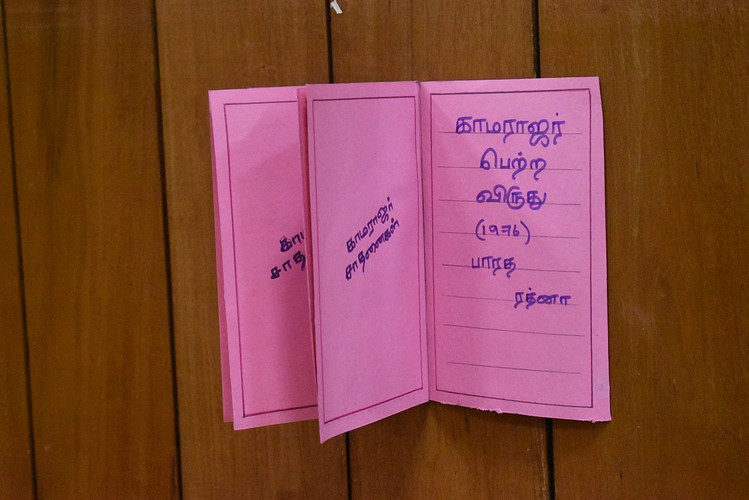 காம
சாத
காமராஜர்
சாதனைகள்
காமராஜர்
பெற்ற
விருது
(1976)
பாரத
ரத்னா